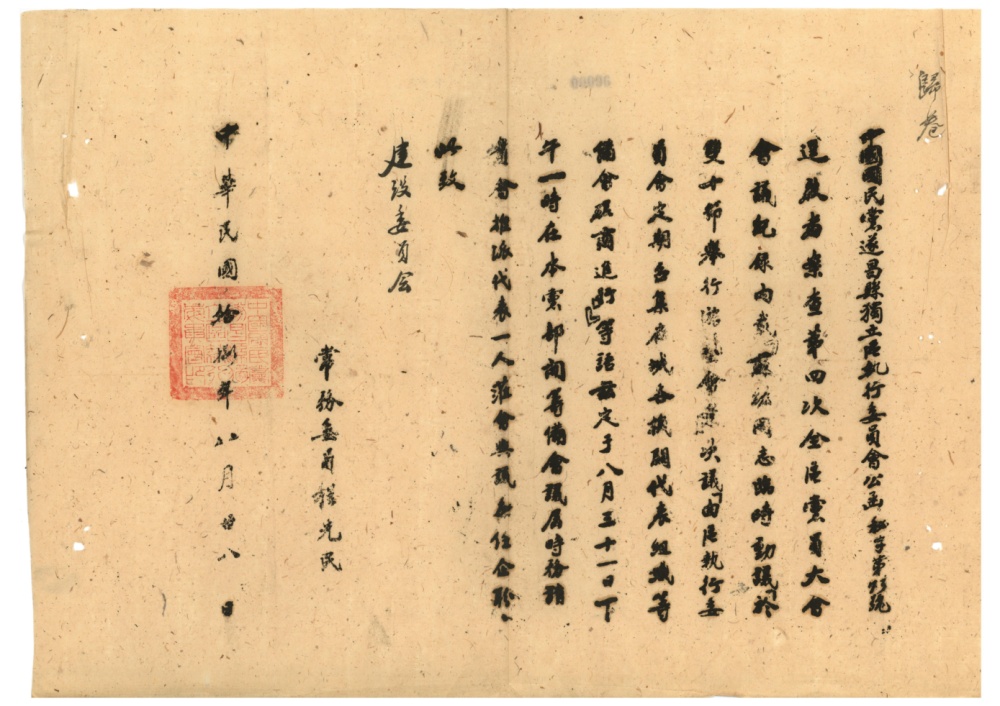 歸卷
中國國民黨遂昌縣獨立區執行委員會公函秘字第號
逕啟者案查第四次全區黨員大會
會議紀錄內戴蘇同志臨時動議於
雙十節舉行遊藝會案決議「由區執行委
員會定期召集府城各機關代表組織籌
備會磋商進行」等語茲定于八月三十一日下
午一時在本黨部開籌備會議屆時務請
貴會推派代表一人蒞會與議無任企盼、
此致
建設委員会
常務委員程光民
中華民國拾捌年八月廿八日